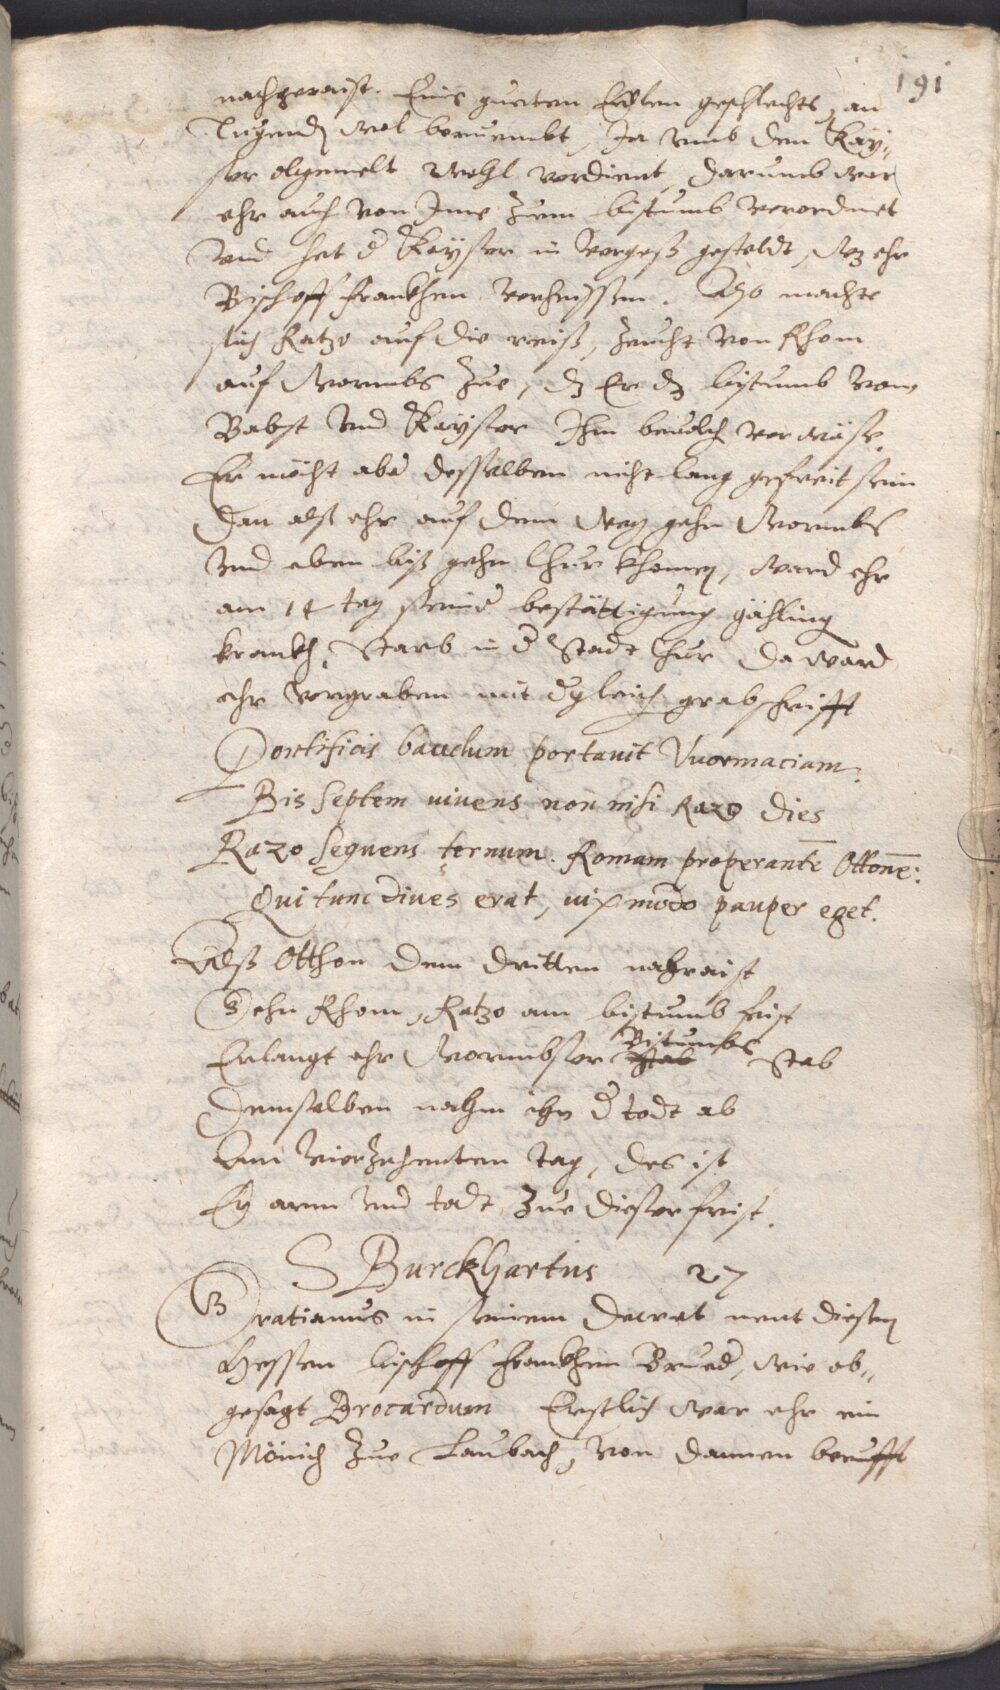 191
nachgeraist. Eins gueten Edlen geschlechts, an
Tugendẽ wol beruembt, Ja vmb den Kay„
ser obgemelt wohl verdient, darumb war
ehr auch von Ime zum bistumb verordnet
vnd hat d Kayser in vergeß gesteldt, wz ehr
Bischoff Frankhen verheyssen. Also machte
sich Ratzo auf die reiß, zeucht von Rhom
auf Wormbs zue, dz Er dz bistumb vom
Babst vnd Kayser Ihm beuolch verwäse.
Er möcht abd desselben nicht lang gefreit sein
Dan alß ehr auf dem weg gehn Wormbs
vnd eben biß gehn Chur khomen, ward ehr
am 14 tag seind bestättigung gähling
krankh, starb in d Stadt Chur da ward
ehr vergraben mit dgleich grabschrifft
Pontificis baculum portauit Vuormaciam.
Bis septem viuens non nisi Razo dies
Razo sequens ternum. Romam properantē Ottonē:
Qui tunc diues erat, uix modo pauper eget.
Alß Otthon dem dritten nachraist
Gehn Rhom, Ratzo am bistumb feist
Erlangt ehr Wormbser Bistumbs stab
Demselben nahm ihn d todt ab
Am vierzehenten tag, des ist
Er arm vnd todt zue dieser frist.
S Burckhartus 27
Gratianus in seinem decret nent diesen
Hessen bischoff Frankhen Brued, wie ob„
gesagt Brocardum Erstlich war ehr ein
Mönich zue Laubach, von dannen berufft